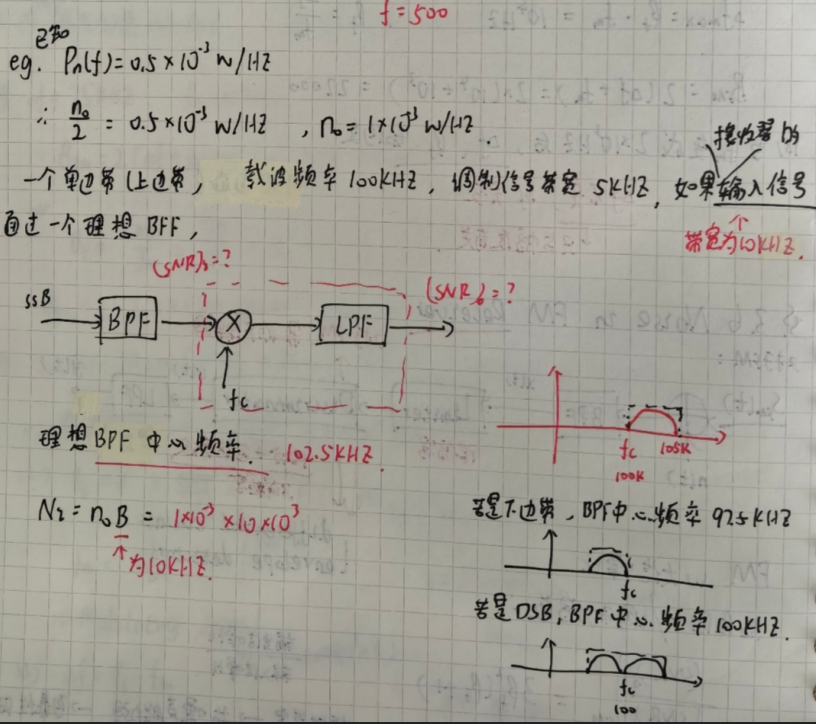 f=500
已知
eg. Pn(f)=0.5×10⁻³ W/HZ
∴ n₀/2 = 0.5×10⁻³ W/HZ , n₀=1×10⁻³ W/HZ.
接收器的
一个单边带(上边带, 载波频率100KHZ, 调制信号带宽5KHZ, 如果输入信号
带宽为10KHZ.
通过一个理想BFF,
(SNR)ᵢ=?
(SNR)₀=?
SSB
BPF
×
LPF
fc
理想BPF中心频率. 102.5KHZ.
fc
105K
100K
Nᵢ=n₀B = 1×10⁻³×10×10³
为10KHZ.
若是下边带, BPF中心频率 925KHZ
fc
若是DSB, BPF中心频率100KHZ.
fc
100